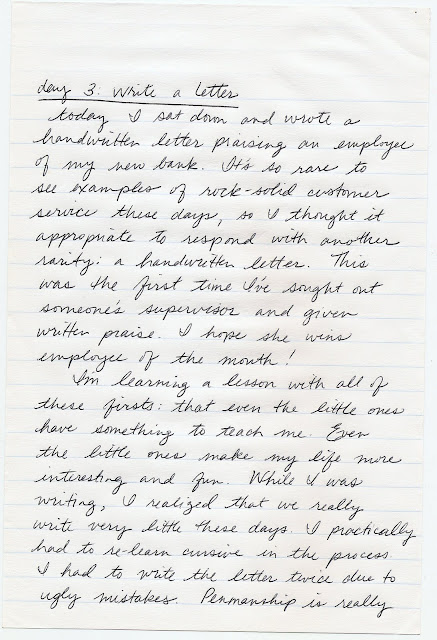 day 3: Write a Letter
today I sat down and wrote a
handwritten letter praising an employee
of my new bank. It's so rare to
see examples of rock-solid customer
service these days, so I thought it
appropriate to respond with another
rarity: a handwritten letter. This
was the first time I've sought out
someone's supervisor and given
written praise. I hope she wins
employee of the month!
I'm learning a lesson with all of
these firsts: that even the little ones
have something to teach me. Even
the little ones make my life more
interesting and fun. While I was
writing, I realized that we really
write very little these days. I practically
had to re-learn cursive in the process.
I had to write the letter twice due to
ugly mistakes. Penmanship is really